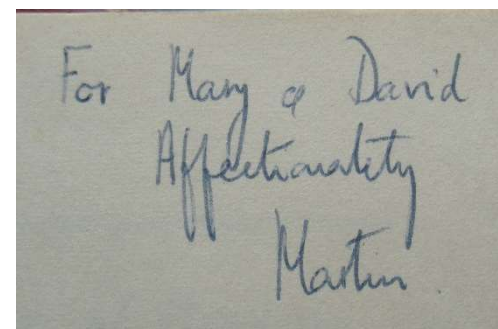 For Mary & David
Affectionately
Martin.